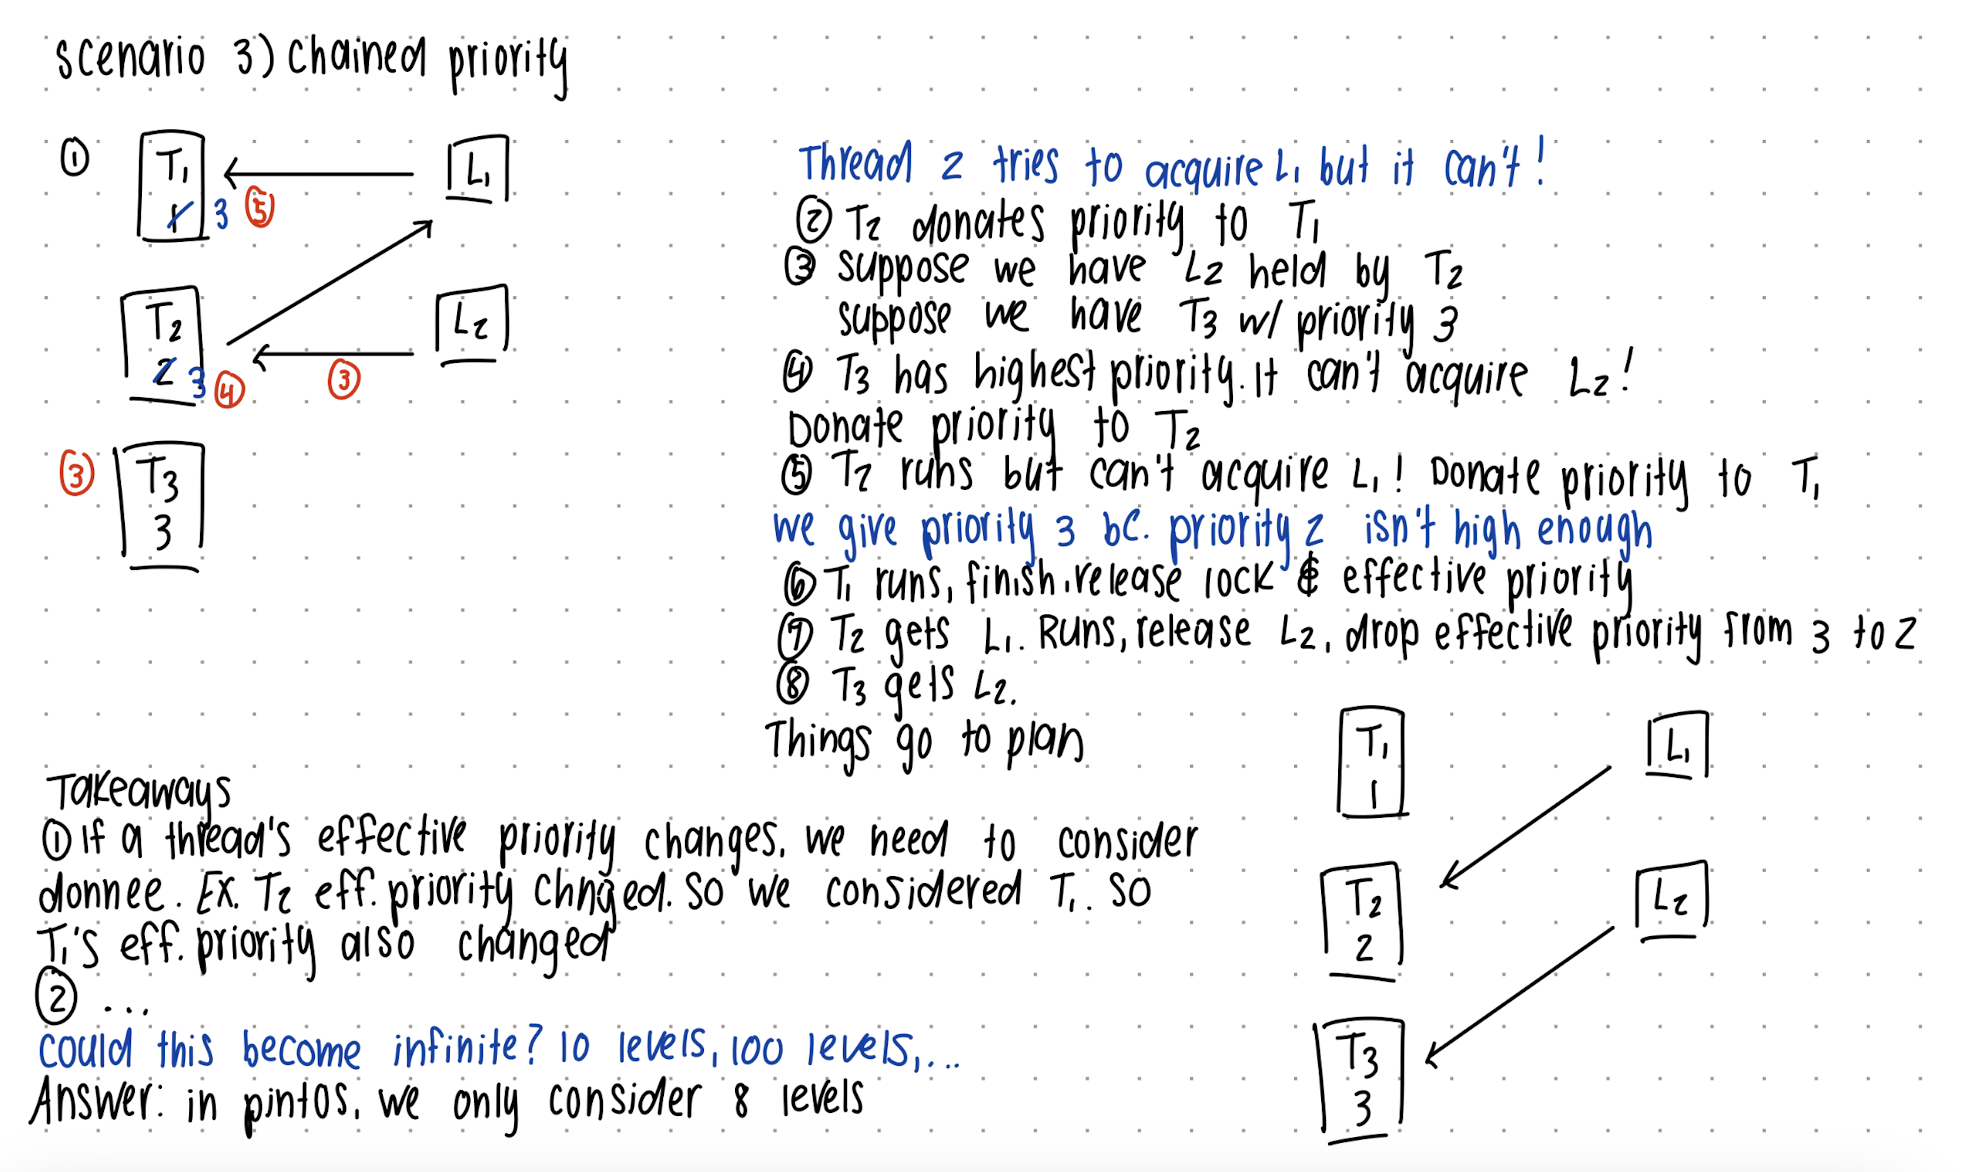 scenario 3) chained priority
① T1 L1
1 3 ⑤
T2 L2
2 3 ④ ③
③ T3
3
Thread 2 tries to acquire L1 but it can't!
② T2 donates priority to T1
③ suppose we have L2 held by T2
suppose we have T3 w/ priority 3
④ T3 has highest priority. It can't acquire L2!
Donate priority to T2
⑤ T2 runs but can't acquire L1! Donate priority to T1
we give priority 3 bc. priority 2 isn't high enough
⑥ T1 runs, finish, release lock & effective priority
⑦ T2 gets L1. Runs, release L2, drop effective priority from 3 to 2
⑧ T3 gets L2.
Things go to plan
T1 L1
1
T2 L2
2
T3
3
Takeaways
① If a thread's effective priority changes, we need to consider
donnee. Ex. T2 eff. priority chnged. So we considered T1. So
T1's eff. priority also changed
② ...
could this become infinite? 10 levels, 100 levels,...
Answer: in pintos, we only consider 8 levels